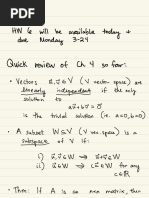 HW 6 will be available today +
due Monday 3-24
Quick review of Ch 4 so far:
• Vectors u⃗, v⃗ ∈ V (V vector space) are
linearly independent if the only
solution to
a u⃗ + b v⃗ = 0⃗
is the trivial solution (i.e. a=0, b=0)
• A subset W ⊆ V (V vec. space) is a
subspace of V if:
i) u⃗, v⃗ ∈ W → u⃗ + v⃗ ∈ W
ii) u⃗ ∈ W → c u⃗ ∈ W
• Thm: If A is an mxn matrix, then